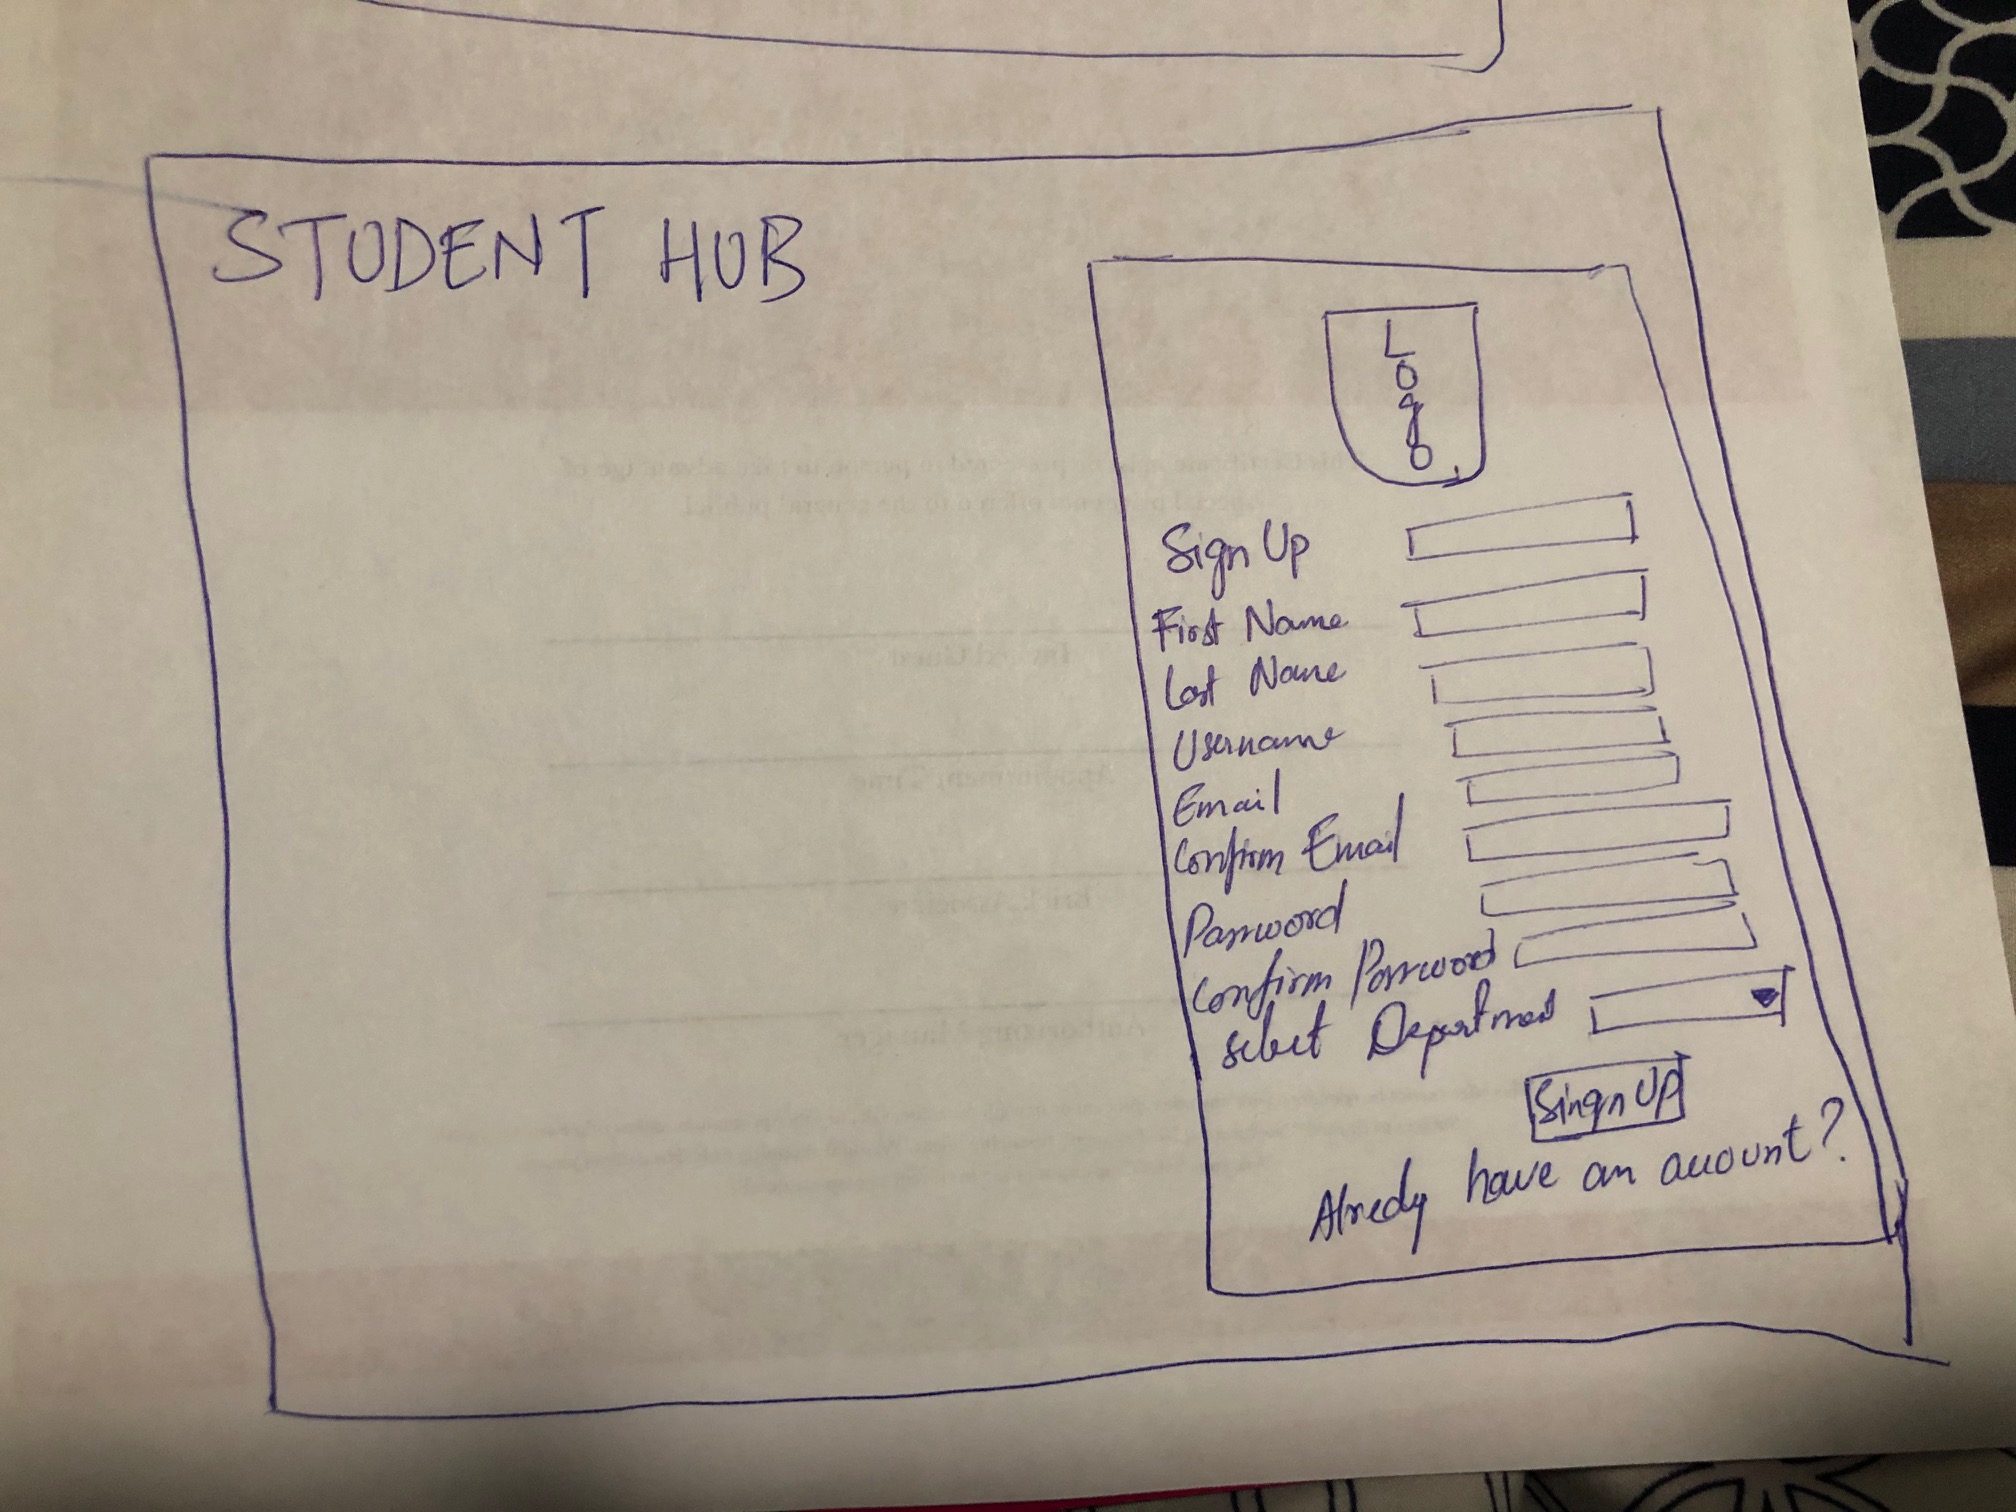 STUDENT HUB
LOGO
Sign Up
First Name
Last Name
Username
Email
Confirm Email
Password
Confirm Password
select Department
Singn UP
Already have an account?